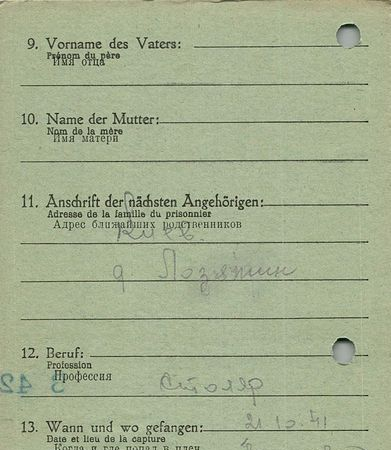 9. Vorname des Vaters:
Prénom du père
Имя отца
10. Name der Mutter:
Nom de la mère
Имя матери
11. Anschrift der nächsten Angehörigen:
Adresse de la famille du prisonnier
Адрес ближайших родственников
Киев.
д
12. Beruf:
Profession
Профессия
Столяр
13. Wann und wo gefangen:
21.10.41
Date et lieu de la capture
Когда и где попал в плен